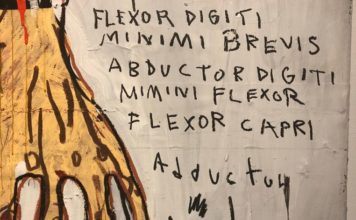 FLEXOR DIGITI
MINIMI BREVIS
ABDUCTOR DIGITI
MIMINI FLEXOR
FLEXOR CAPRI
Adductuy